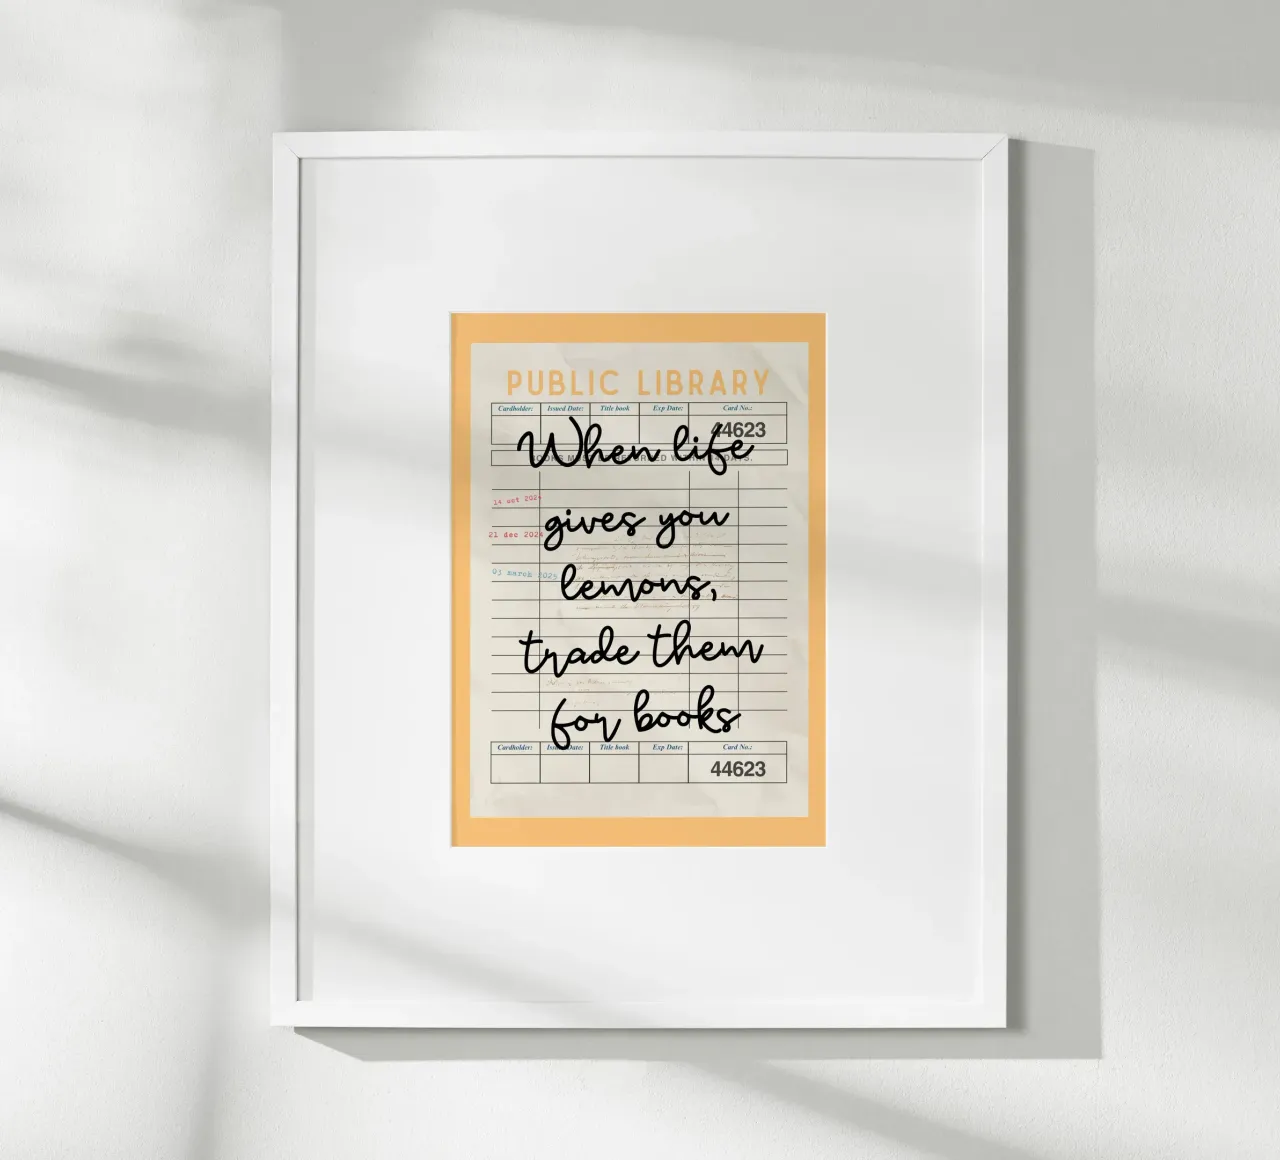 PUBLIC LIBRARY
Cardholder: Issued Date: Title book Exp Date: Card No.:
44623
When life
gives you
lemons,
trade them
for books
21 dec 2024
03 march 2025
Cardholder: Issued Date: Title book Exp Date: Card No.:
44623